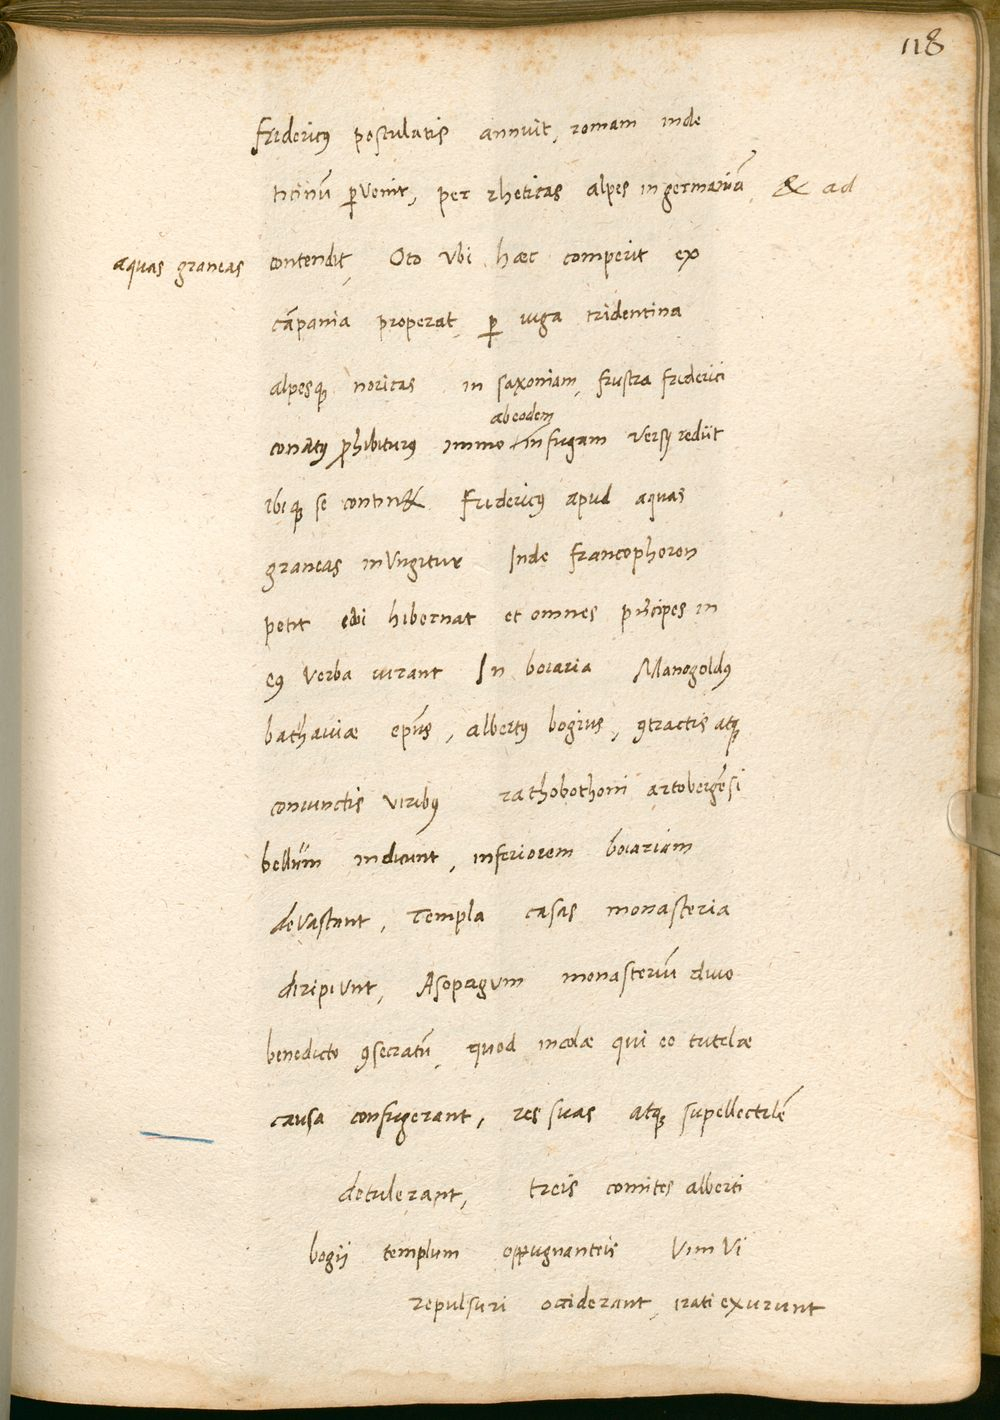 118
Fridericꝰ postulatis annuit, romam inde
ticinū ꝑvenit, per rheticas alpes in germaniā & ad
aquas graneas contendit, Oto vbi hæc comperit ex
cāpania properat, ꝑ iuga tridentina
alpesqꝫ noricas in saxoniam, frustra friderici
ab eodem
conatꝰ ꝓhibiturꝰ immo in fugam versꝰ rediit
ibiqꝫ se contin& Fridericꝰ apud aquas
graneas inungitur Inde francophoron
petit ibi hibernat et omnes prīcipes in
eꝰ verba iurant In boiaria Manogoldꝰ
bathaviæ epūs, albertꝰ bogius, ꝯtractis atqꝫ
coniunctis viribꝰ rathobothoni artobergēsi
bellum indicunt, inferiorem boiariam
devastant, Templa casas monasteria
diripiunt, Asopagum monasteriū divo
benedicto ꝯsecratū, quod incolæ qui eo tutelæ
causa confugerant, res suas atqꝫ supellectilē
detulerant, treis comites alberti
bogij templum oppugnanteis vim vi
repulsuri occiderant, irati exurunt